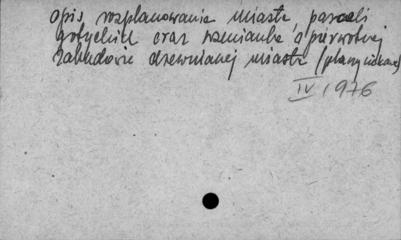 opis, rozplanowanie miasta, parceli
gotyckich oraz wzmianka o pierwotnej
zabudowie drewnianej miasta (plany
IV 1976